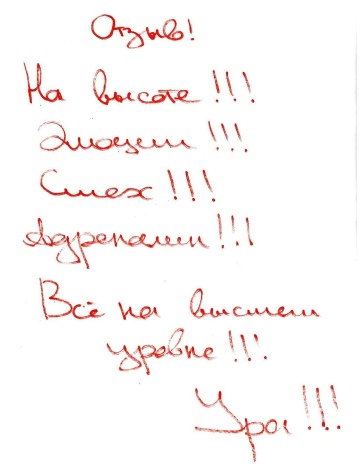 Отзыв!
На высоте!!!
Эмоции!!!
Смех!!!
Адреналин!!!
Всё на высшем
уровне!!!
Ура!!!